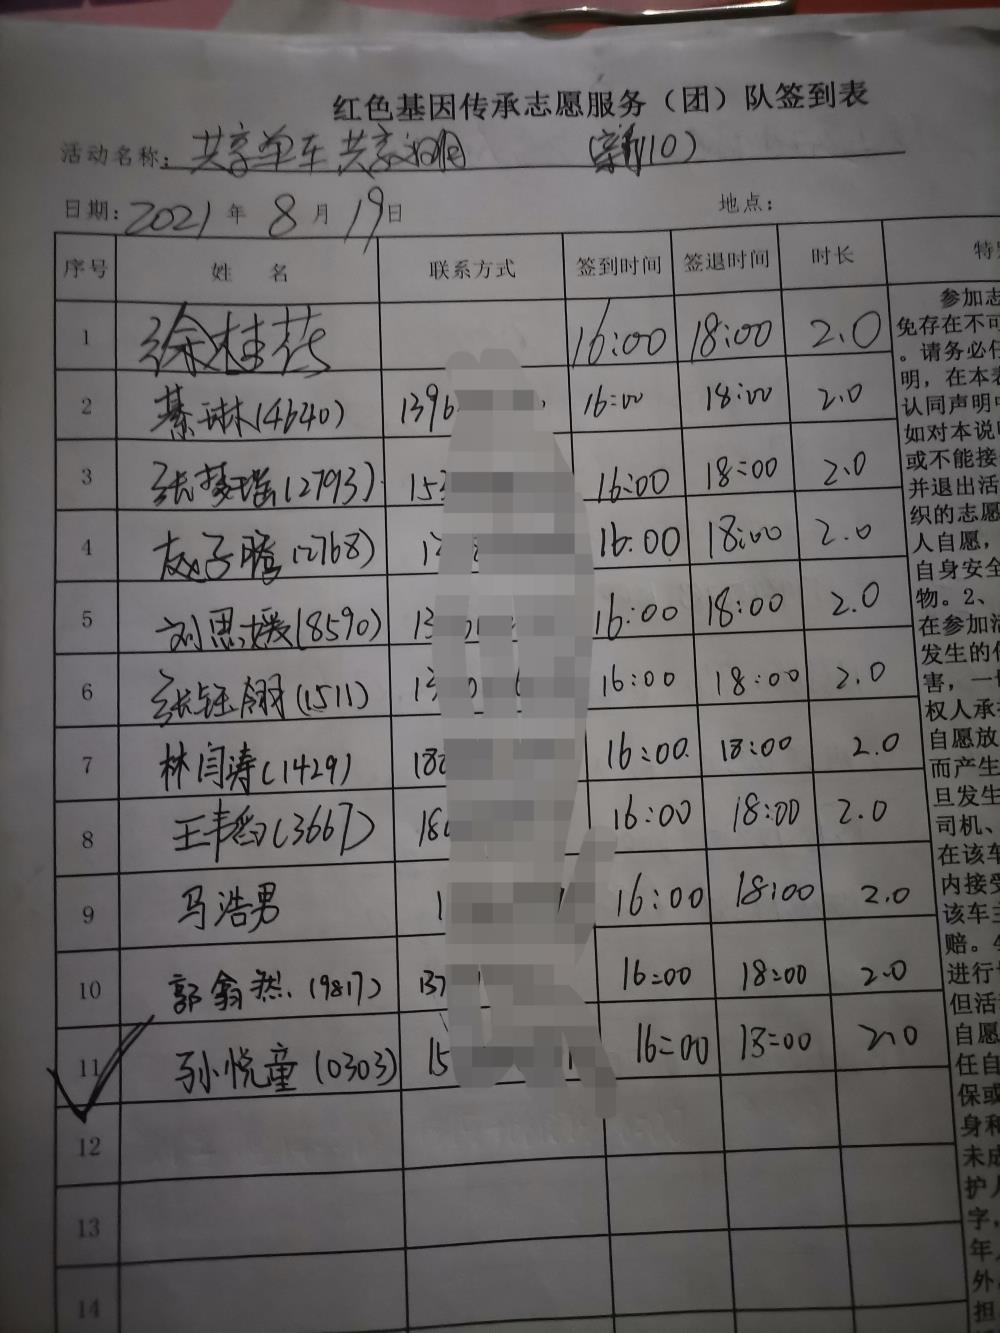 红色基因传承志愿服务（团）队签到表
活动名称：共享单车 共享文明 (新10)
日期：2021年 8月 19日 地点：
序号 姓 名 联系方式 签到时间 签退时间 时长 特
1 徐桂花 16:00 18:00 2.0
2 綦琳(4640) 1396 16:00 18:00 2.0
3 张梦瑶(2793) 15 16:00 18:00 2.0
4 赵子腾(2768) 1 16:00 18:00 2.0
5 刘思媛(8590) 13 16:00 18:00 2.0
6 张钰翎(1511) 13 16:00 18:00 2.0
7 林闫涛(1429) 18 16:00 18:00 2.0
8 王韦韵(3667) 18 16:00 18:00 2.0
9 马浩男 1 16:00 18:00 2.0
10 郭翕然(9817) 137 16:00 18:00 2.0
11 孙悦童(0303) 15 16:00 18:00 2.0
12
13
14
参加志
免存在不可
。请务必仔
明，在本表
认同声明中
如对本说明
或不能接
并退出活
织的志愿
人自愿，
自身安全
物。2、
在参加活
发生的
害，一切
权人承
自愿放
而产生
旦发生
司机、
在该车
内接受
该车主
赔。4
进行
但活
自愿
任自
保或
身和
未成
护人
字，
年
外
担